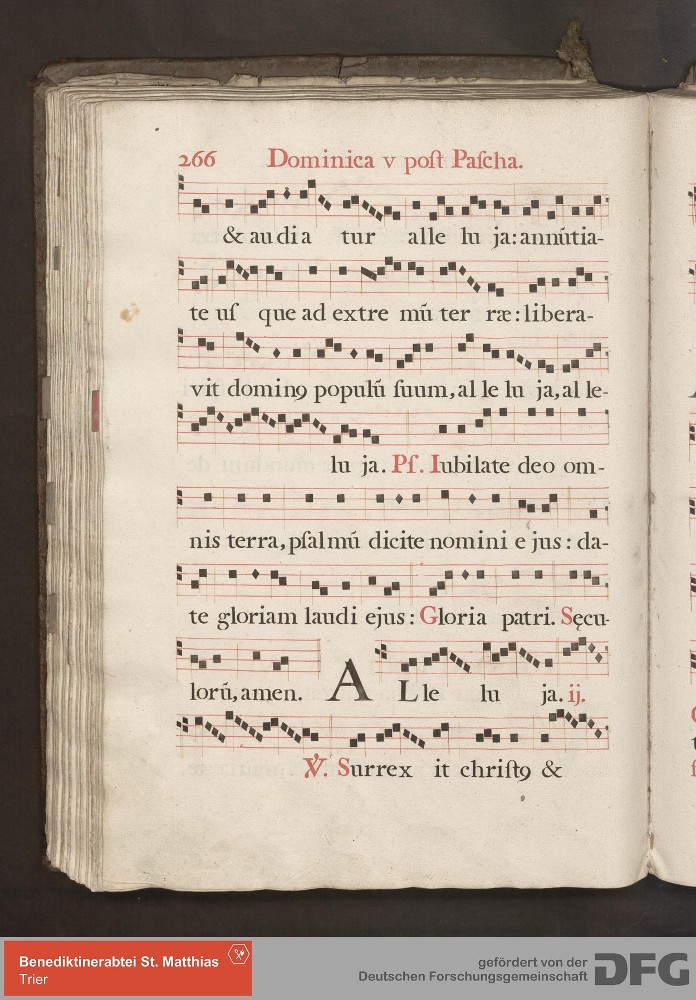 266 Dominica v poſt Paſcha.
& audia tur alle lu ja: annũtia-
te uſ que ad extre mũ ter ræ: libera-
vit dominꝯ populũ ſuum, al le lu ja, al le-
lu ja. Pſ. Iubilate deo om-
nis terra, pſalmũ dicite nomini e jus: da-
te gloriam laudi ejus: Gloria patri. Sęcu-
lorũ, amen. ALle lu ja. ij.
℣. Surrex it chriſtꝯ &
Benediktinerabtei St. Matthias
Trier
gefördert von der
Deutschen Forschungsgemeinschaft
DFG